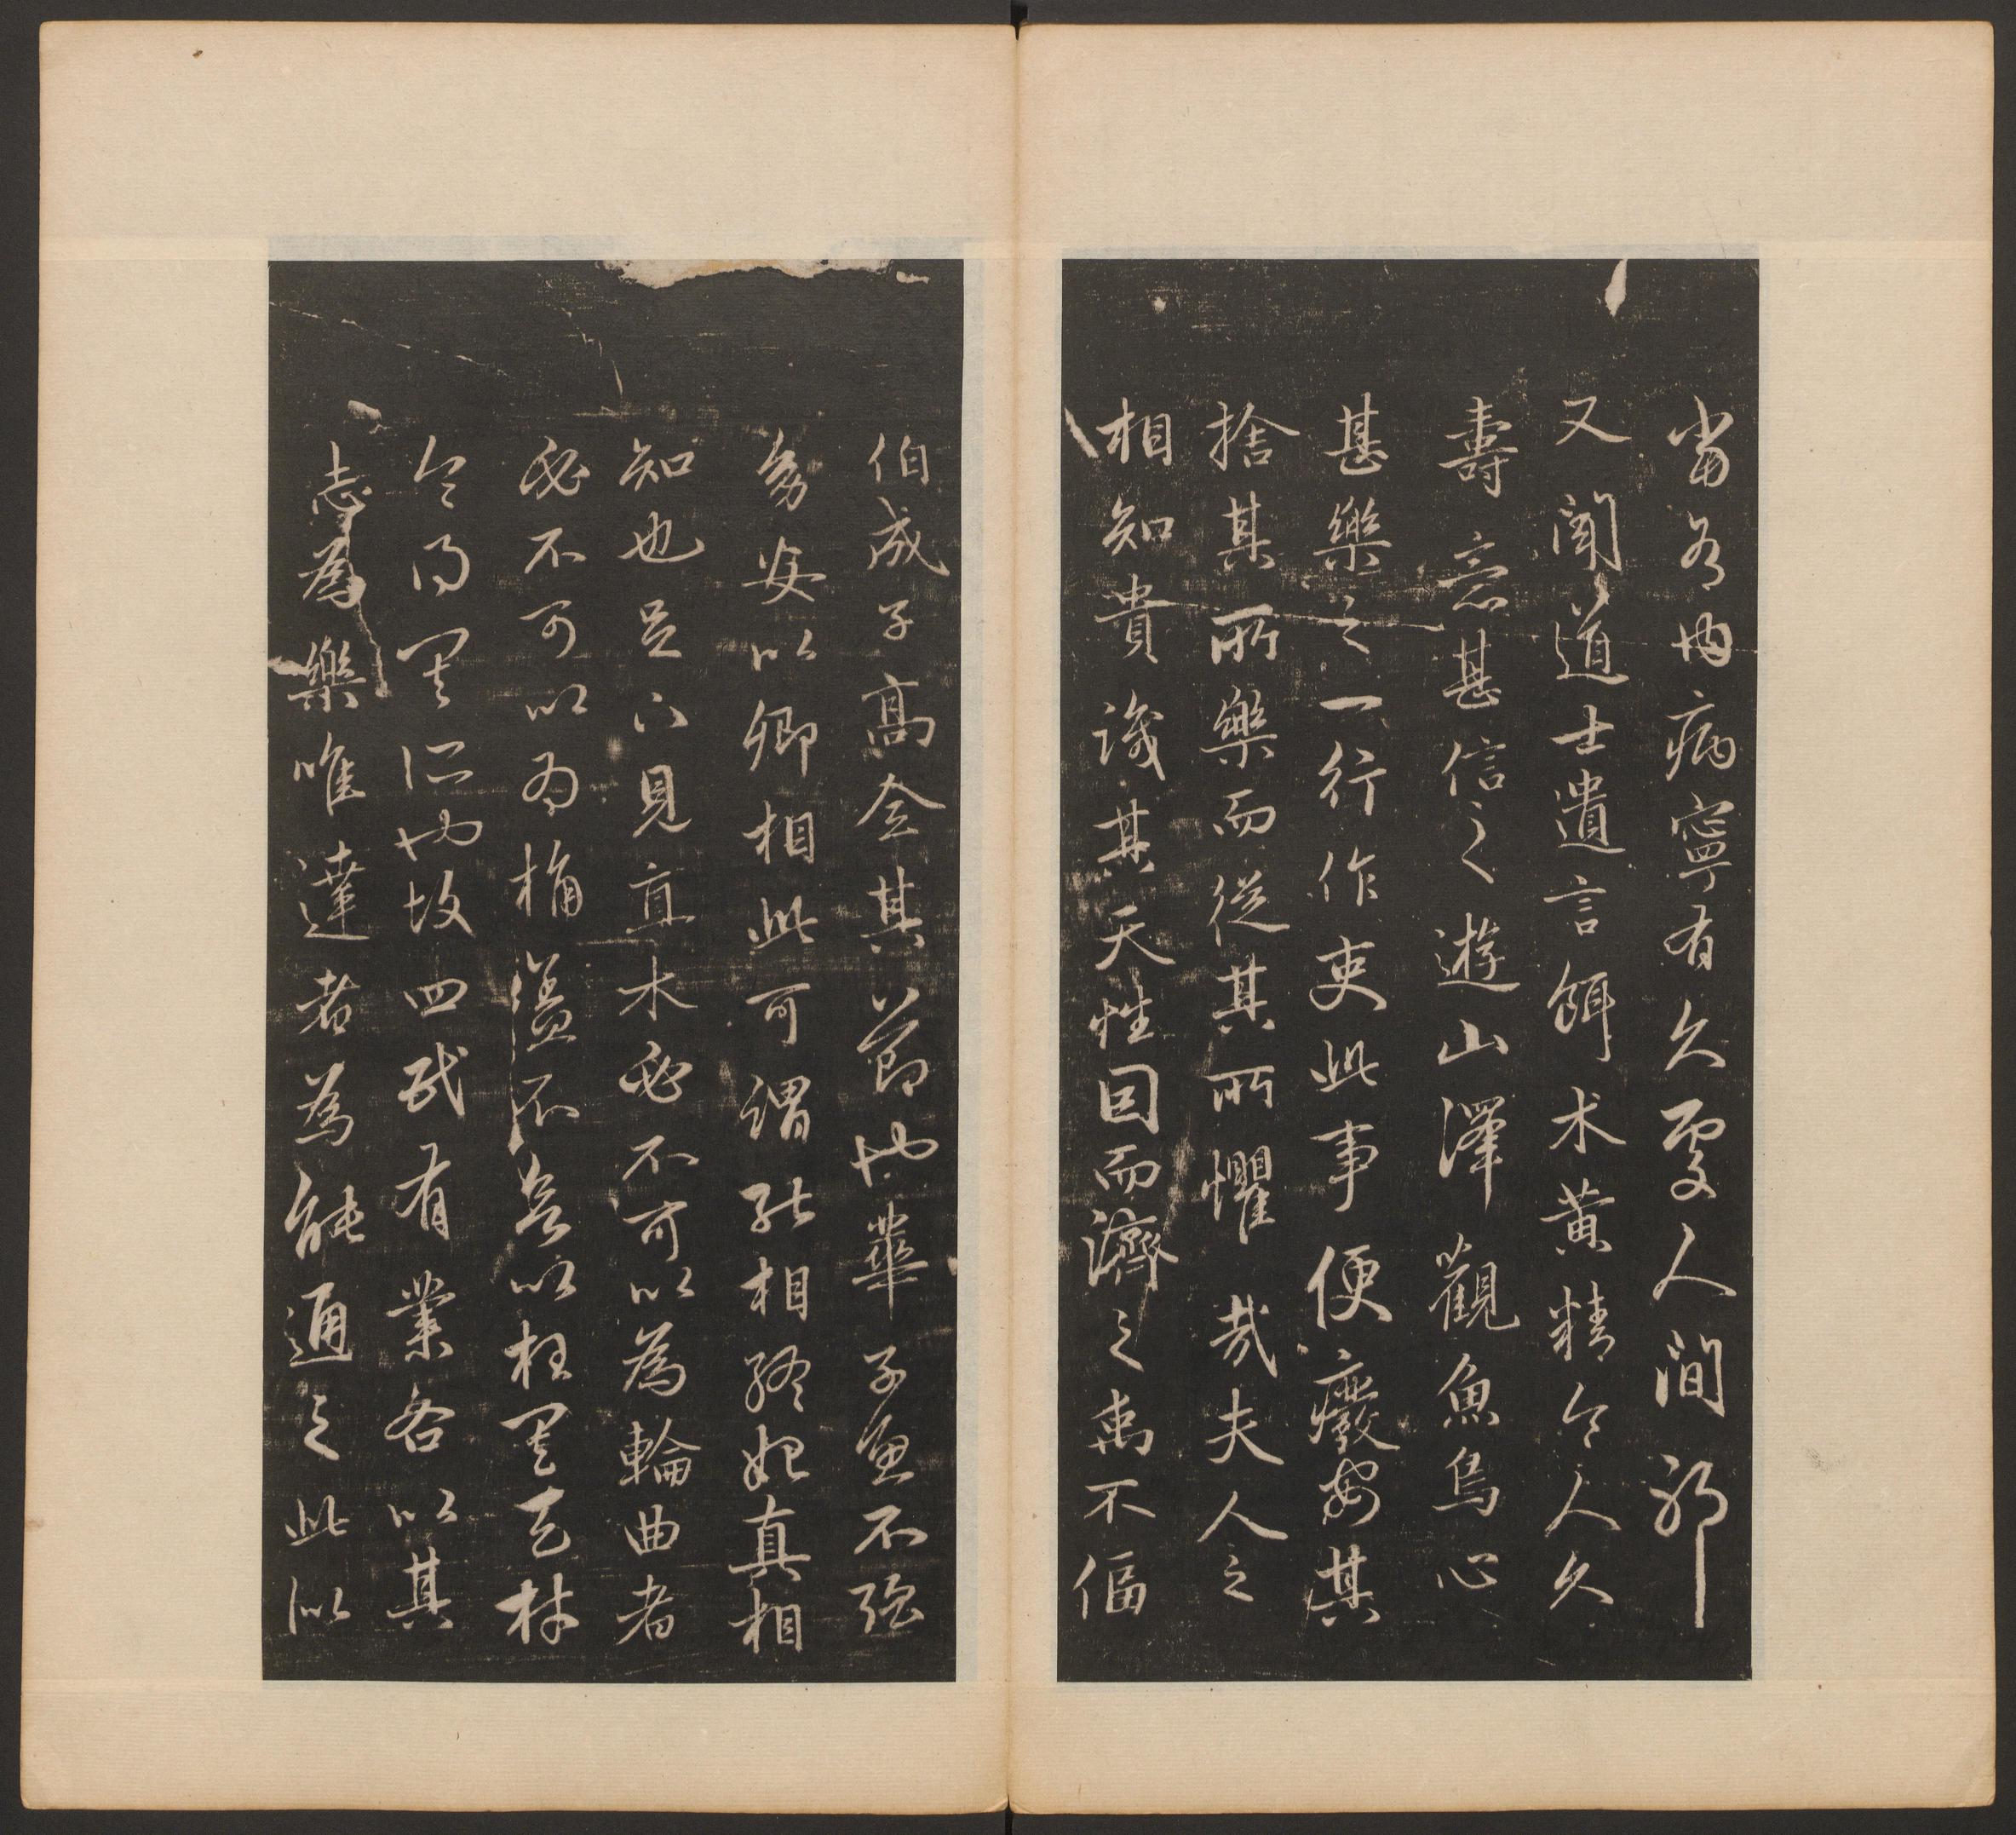 當有内病寧有久處人間邪
又聞道士遺言餌术黃精令人久
壽意甚信之遊山澤觀魚鳥心
甚樂之一行作吏此事便廢安其
捨其所樂而從其所懼哉夫人之
相知貴識其天性因而濟之禹不偪
伯成子高全其節也華子魚不强
幼安以卿相此可謂能相終始真相
知也足下見直木必不可以為輪曲者
必不可以為桷蓋不以枉其天材
令得其所也故四民有業各以其
志為樂唯達者為能通之此似